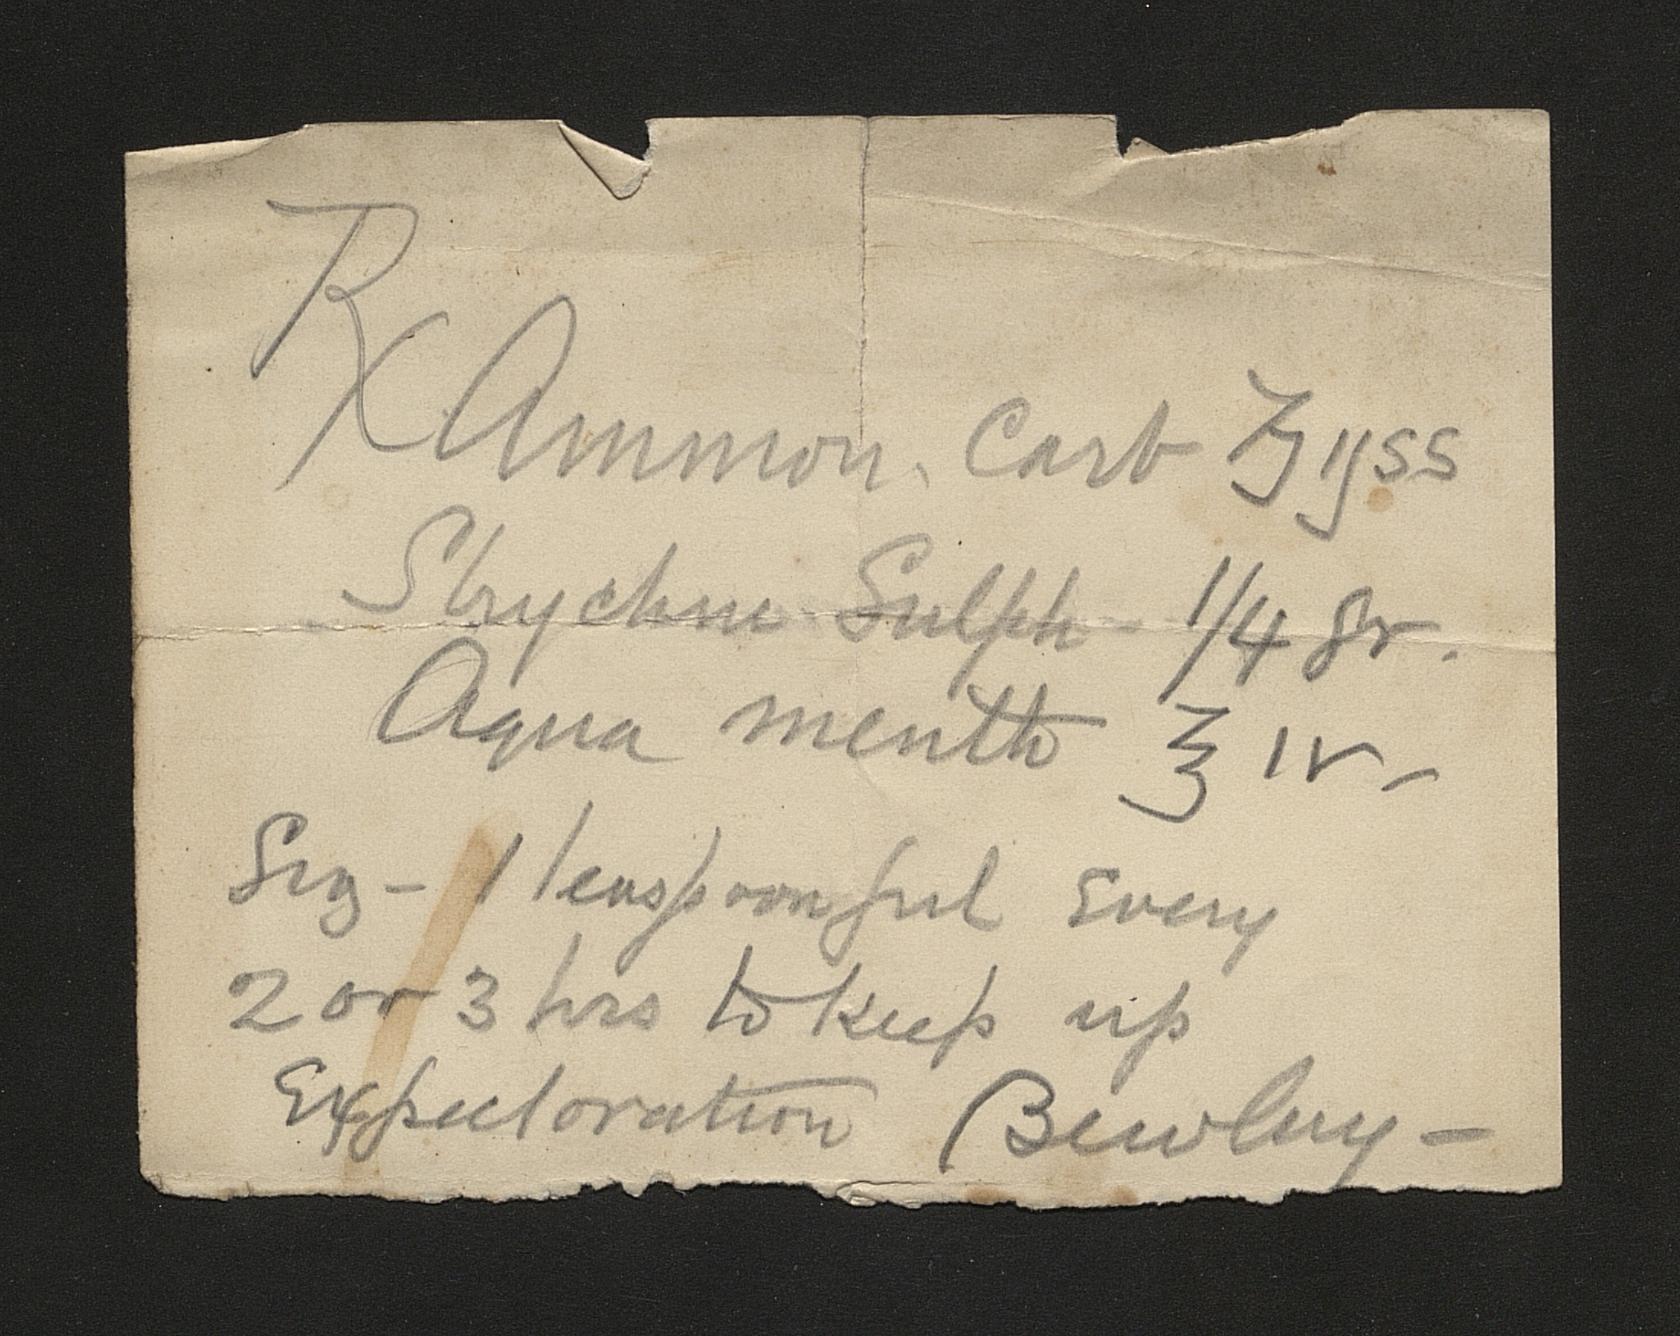 ℞ Ammon. Carb ʒ ijss
Strychni Sulph - 1/4 gr.
Aqua menth ℥ iv.
Sig - 1 teaspoonful Every
2 or 3 hrs to keep up
Expectoration Bewley -